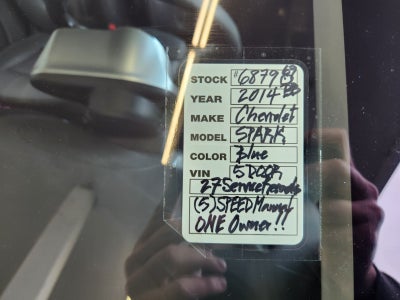 STOCK #6879
YEAR 2014
MAKE Chevrolet
MODEL SPARK
COLOR Blue
VIN 5 DOOR
27 Service Records
(5) SPEED Manual
ONE Owner!!